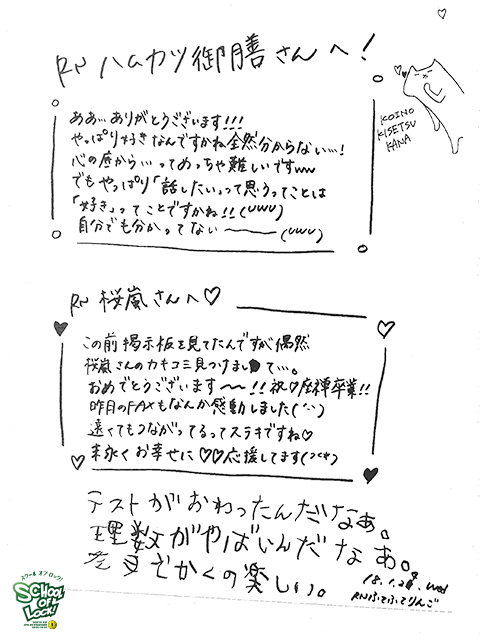 RN ハムカツ御膳さんへ！
KOINO
KISETSU
KANA
ああ…ありがとうございます!!!
やっぱり好きなんですかね全然分からない…!
心の底から…ってめっちゃ難しいですww
でもやっぱり「話したい」って思うってことは
「好き」ってことですかね!!(UWU)
自分でも分かってない〜〜〜(UWU)
RN 桜嵐さんへ♡
この前掲示板を見てたんですが偶然
桜嵐さんのカキコミ見つけまして…。
おめでとうございます〜〜!!祝♡座禅卒業!!
昨日のFAXもなんか感動しました
遠くてもつながってるってステキですね♡
末永くお幸せに♡♡応援してます
テストがおわったんだなぁ。
理数がやばいんだなぁ。
でかくの楽しい。
wed
スクール オブ ロック!
SCHOOL
OF
LOCK!